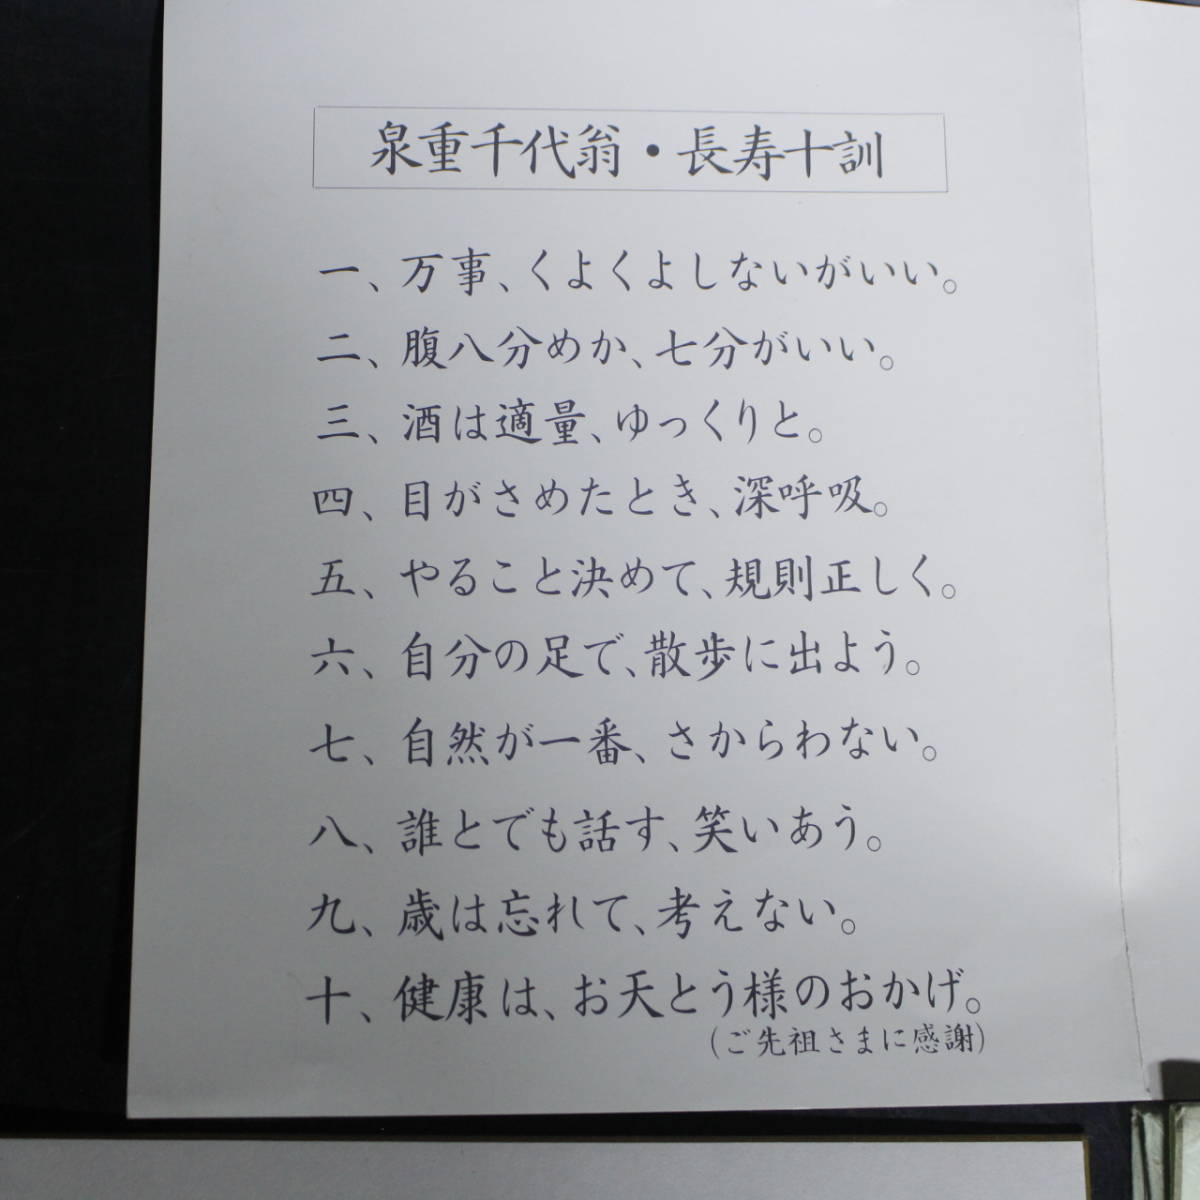 泉重千代翁・長寿十訓
一、万事、くよくよしないがいい。
二、腹八分めか、七分がいい。
三、酒は適量、ゆっくりと。
四、目がさめたとき、深呼吸。
五、やること決めて、規則正しく。
六、自分の足で、散歩に出よう。
七、自然が一番、さからわない。
八、誰とでも話す、笑いあう。
九、歳は忘れて、考えない。
十、健康は、お天とう様のおかげ。
(ご先祖さまに感謝)